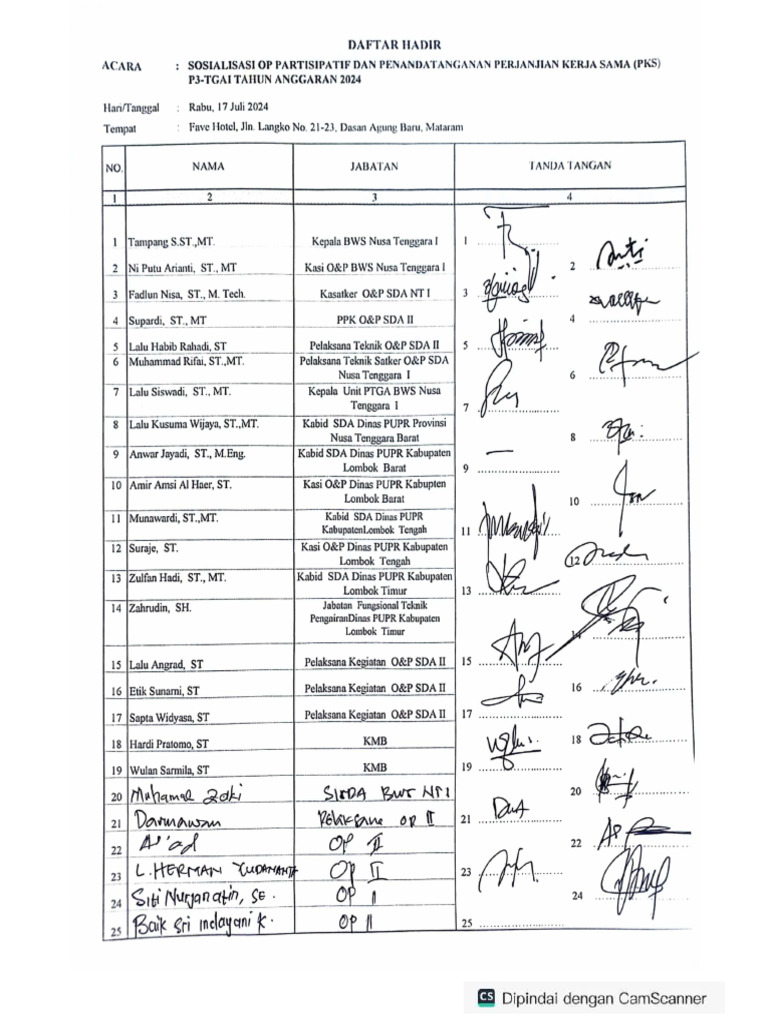 DAFTAR HADIR
ACARA : SOSIALISASI OP PARTISIPATIF DAN PENANDATANGANAN PERJANJIAN KERJA SAMA (PKS)
P3-TGAI TAHUN ANGGARAN 2024
Hari/Tanggal : Rabu, 17 Juli 2024
Tempat : Fave Hotel, Jln. Langko No. 21-23, Dasan Agung Baru, Mataram
NO. NAMA JABATAN TANDA TANGAN
1 2 3 4
1 Tampang S.ST.,MT. Kepala BWS Nusa Tenggara I 1
2 Ni Putu Arianti, ST., MT Kasi O&P BWS Nusa Tenggara I 2
3 Fadlun Nisa, ST., M. Tech. Kasatker O&P SDA NT I 3
4 Supardi, ST., MT PPK O&P SDA II 4
5 Lalu Habib Rahadi, ST Pelaksana Teknik O&P SDA II 5
6 Muhammad Rifai, ST.,MT. Pelaksana Teknik Satker O&P SDA
Nusa Tenggara I 6
7 Lalu Siswadi, ST., MT. Kepala Unit PTGA BWS Nusa
Tenggara I 7
8 Lalu Kusuma Wijaya, ST.,MT. Kabid SDA Dinas PUPR Provinsi
Nusa Tenggara Barat 8
9 Anwar Jayadi, ST., M.Eng. Kabid SDA Dinas PUPR Kabupaten
Lombok Barat 9
10 Amir Amsi Al Haer, ST. Kasi O&P Dinas PUPR Kabupten
Lombok Barat 10
11 Munawardi, ST.,MT. Kabid SDA Dinas PUPR
KabupatenLombok Tengah 11
12 Suraje, ST. Kasi O&P Dinas PUPR Kabupaten
Lombok Tengah 12
13 Zulfan Hadi, ST., MT. Kabid SDA Dinas PUPR Kabupaten
Lombok Timur 13
14 Zahrudin, SH. Jabatan Fungsional Teknik
PengairanDinas PUPR Kabupaten
Lombok Timur 14
15 Lalu Angrad, ST Pelaksana Kegiatan O&P SDA II 15
16 Etik Sunarni, ST Pelaksana Kegiatan O&P SDA II 16
17 Sapta Widyasa, ST Pelaksana Kegiatan O&P SDA II 17
18 Hardi Pratomo, ST KMB 18
19 Wulan Sarmila, ST KMB 19
20 Mohamad Zaki SISDA BWS NT I 20
21 Darmawan Pelaksana OP II 21
22 As'ad OP II 22
23 L. HERMAN YUDANANTA OP II 23
24 Siti Nurjanatin, SE. OP II 24
25 Baik Sri indayani k. OP II 25
CS Dipindai dengan CamScanner